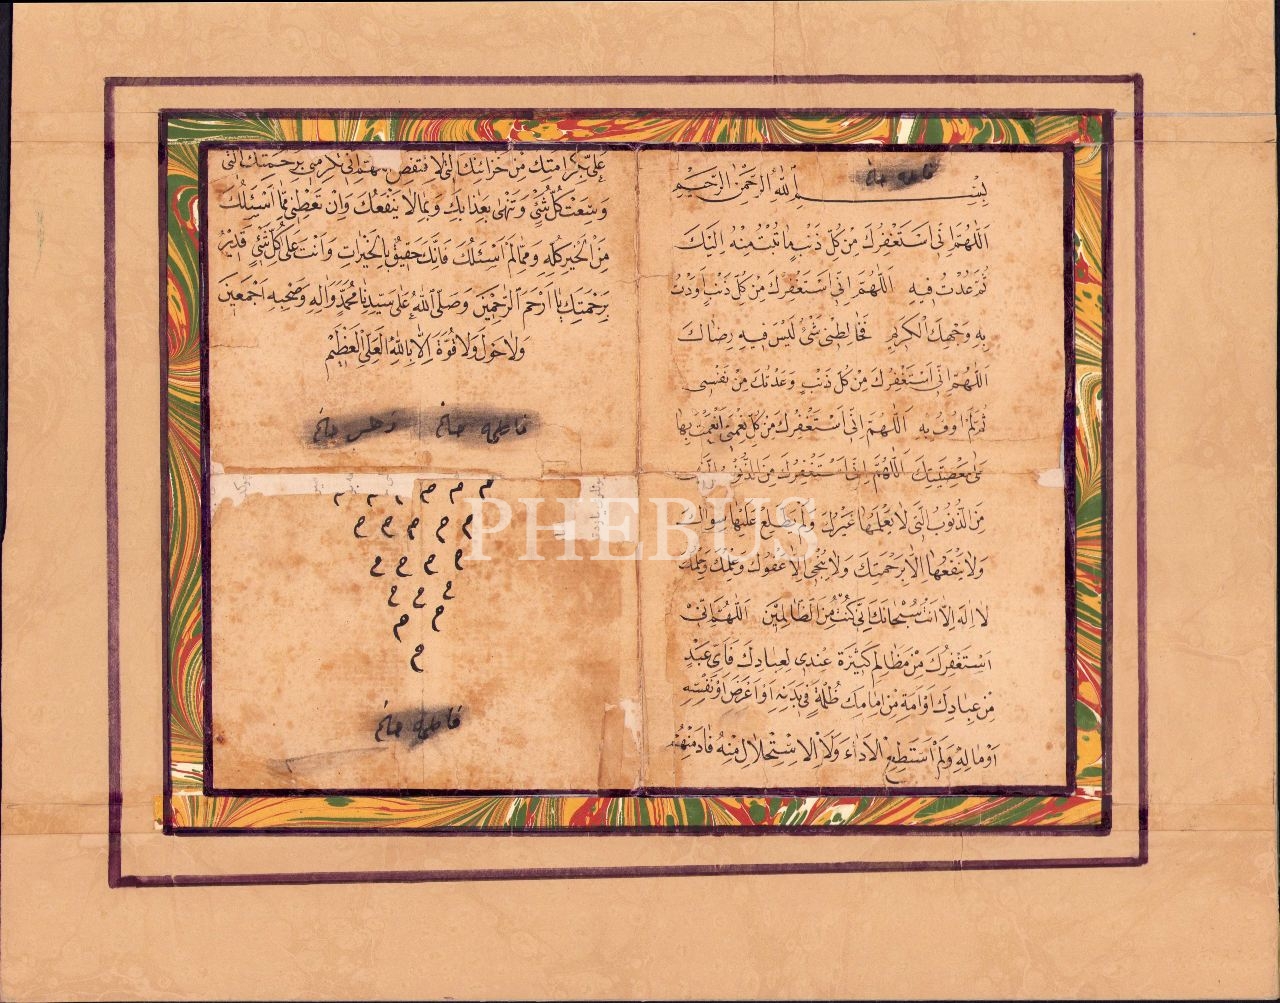 فاطمه خانم
بِسْمِ اللهِ الرَّحْمٰنِ الرَّحِيْمِ
اَللّٰهُمَّ اِنّٖى اَسْتَغْفِرُكَ مِنْ كُلِّ ذَنْبٍ مَا تُبْتُ مِنْهُ اِلَيْكَ
ثُمَّ عُدْتُ فِيهِ اَللّٰهُمَّ اِنّٖى اَسْتَغْفِرُكَ مِنْ كُلِّ ذَنْبٍ اَوَدْتُ
بِهِ وَجْهِكَ الْكَرِيمِ فَخَالَطَنٖى شَئٌ لَيْسَ فِيهِ رِضَاكَ
اَللّٰهُمَّ اِنّٖى اَسْتَغْفِرُكَ مِنْ كُلِّ ذَنْبٍ وَعَدْتُكَ مِنْ نَفْسٖى
ثُمَّ لَمْ اُوفِ بِهِ اَللّٰهُمَّ اِنّٖى اَسْتَغْفِرُكَ مِنْ كُلِّ نِعْمَتٍ اَنْعَمْتَ بِهَا
عَلٰى مَعْصِيَتِكَ اَللّٰهُمَّ اِنّٖى اَسْتَغْفِرُكَ مِنَ الذُّنُوبِ
مِنَ الذُّنُوبِ الَّتٖى لَا يَعْلَمُهَا غَيْرُكَ وَلَمْ يَطَّلِعْ عَلَيْهَا سِوَاكَ
وَلَا يَنْفَعُهَا اِلَّا رَحْمَتُكَ وَلَا يُنْجٖى اِلَّا عَفْوُكَ وَحِلْمُكَ
لَا اِلٰهَ اِلَّا اَنْتَ سُبْحَانَكَ اِنّٖى كُنْتُ مِنَ الظَّالِمٖينَ اَللّٰهُمَّ اِنّٖى
اَسْتَغْفِرُكَ مِنْ مَظَالِمَ كَثٖيرَةٍ عِنْدٖى لِعِبَادِكَ فَاَىُّ عَبْدٍ
مِنْ عِبَادِكَ اَوْ اَمَةٍ مِنْ اِمَائِكَ ظُلْمَةٍ فٖى بَدَنِهِ اَوْ اَعْرَضَ اَوْ نَفْسِهِ
اَوْ مَالِهِ وَلَمْ اَسْتَطِعِ الْاَدَاءَ وَلَا الْاِسْتِحْلَالَ مِنْهُ
كَرَامَتِكَ مِنْ خَزَائِنِكَ الَّتٖى لَا تَنْقُصُ بِرَحْمَتِكَ الَّتٖى
وَسِعَتْ كُلَّ شَئٍ وَبِمَا لَا يَنْفَعُكَ وَاَنْ تُعْطِيَنٖى مِمَّا اَسْئَلُكَ
مِنَ الْخَيْرِ كُلِّهِ وَمِمَّا لَمْ اَسْئَلُكَ فَاِنَّكَ حَقٖيقٌ بِالْخَيْرَاتِ وَاَنْتَ عَلٰى كُلِّ شَئٍ قَدٖيرٌ
بِرَحْمَتِكَ يَا اَرْحَمَ الرَّاحِمٖينَ وَصَلَّى اللهُ عَلٰى سَيِّدِنَا مُحَمَّدٍ وَاٰلِهِ وَصَحْبِهِ اَجْمَعٖينَ
وَلَا حَوْلَ وَلَا قُوَّةَ اِلَّا بِاللهِ الْعَلِىِّ الْعَظٖيمِ
فاطمه خانم خانم
م م م م م م م
م م م م م
م م م م
م م م
م م
م
فاطمه خانم
PHEBUS